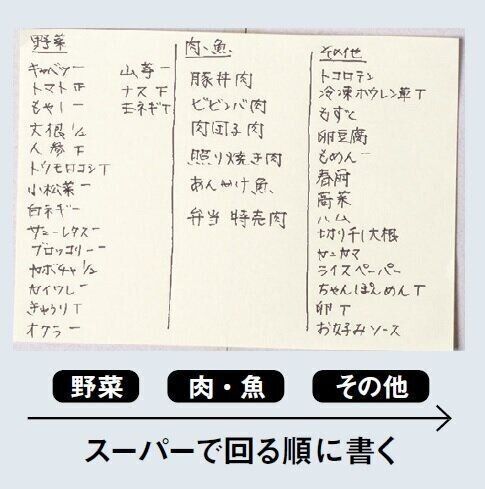 野菜
キャベツ 一
トマト 正
もやし 一
大根 1/2
人参 下
トウモロコシ T
小松菜 一
白ネギ 一
サニーレタス 一
ブロッコリー 一
カボチャ 1/2
カイワレ 一
きゅうり T
オクラ 一
山芋 一
ナス 下
玉ネギ T
肉、魚
豚丼肉
ビビンバ肉
肉団子肉
照り焼き肉
あんかけ魚
弁当 特売肉
その他
トコロテン
冷凍ホウレン草 T
もずく
卵豆腐
もめん 一
春雨
ハム
切り干し大根
ライスペーパー
ちゃんぽんめん T
卵 T
お好みソース
野菜
肉・魚
その他
スーパーで回る順に書く